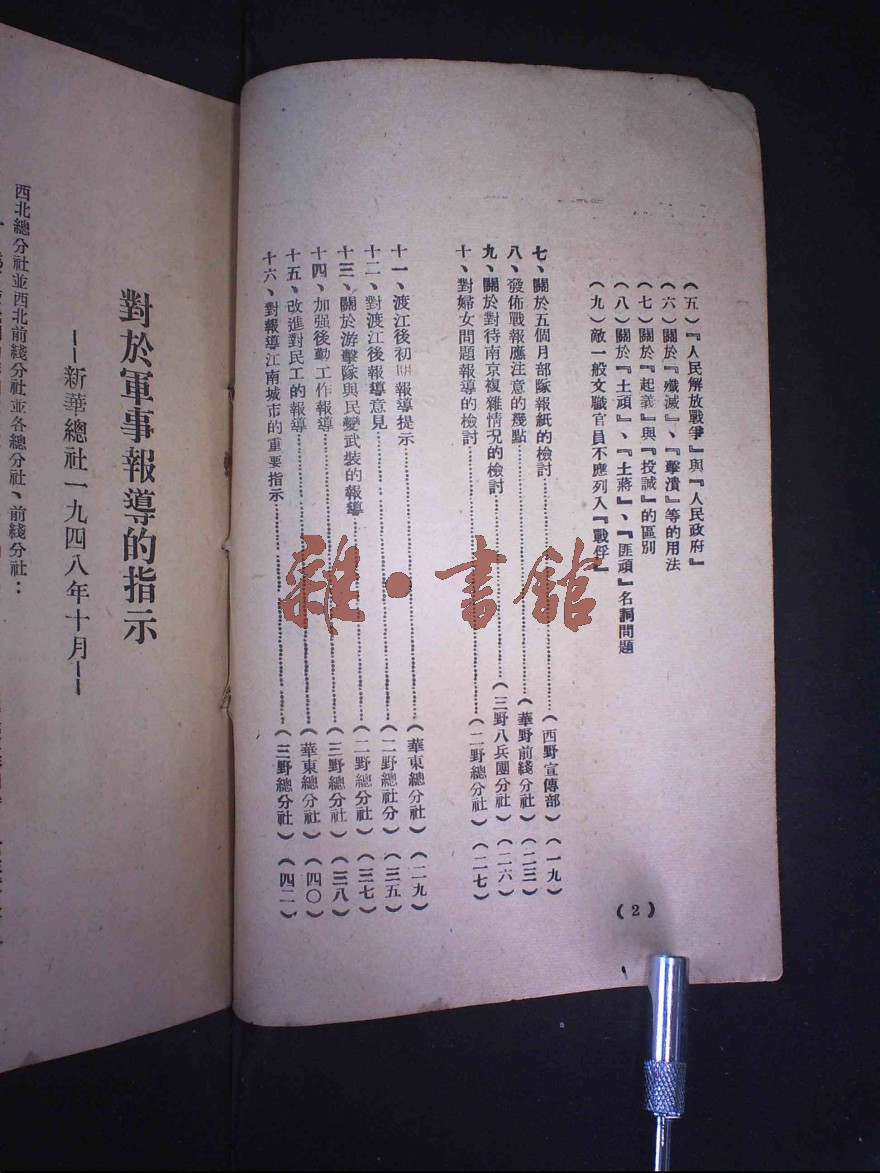 （五）『人民解放戰爭』與『人民政府』
（六）關於『殲滅』、『擊潰』等的用法
（七）關於『起義』與『投誠』的區別
（八）關於『土頑』、『土蔣』、『匪頑』名詞問題
（九）敵一般文職官員不應列入『戰俘』
七、關於五個月部隊報紙的檢討……（西野宣傳部）（一九）
八、發佈戰報應注意的幾點……（華野前綫分社）（二三）
九、關於對待南京複雜情況的檢討……（三野八兵團分社）（二六）
十、對婦女問題報導的檢討……（二野總分社）（二七）
十一、渡江後初期報導提示……（華東總分社）（二九）
十二、對渡江後報導意見……（二野總社分）（三五）
十三、關於游擊隊與民變武裝的報導……（二野總分社）（三七）
十四、加强後勤工作報導……（三野總分社）（三八）
十五、改進對民工的報導……（華東總分社）（四〇）
十六、對報導江南城市的重要指示……（三野總分社）（四二）
（2）
對於軍事報導的指示
——新華總社一九四八年十月——
西北總分社並西北前綫分社並各總分社、前綫分社：
雜·書館